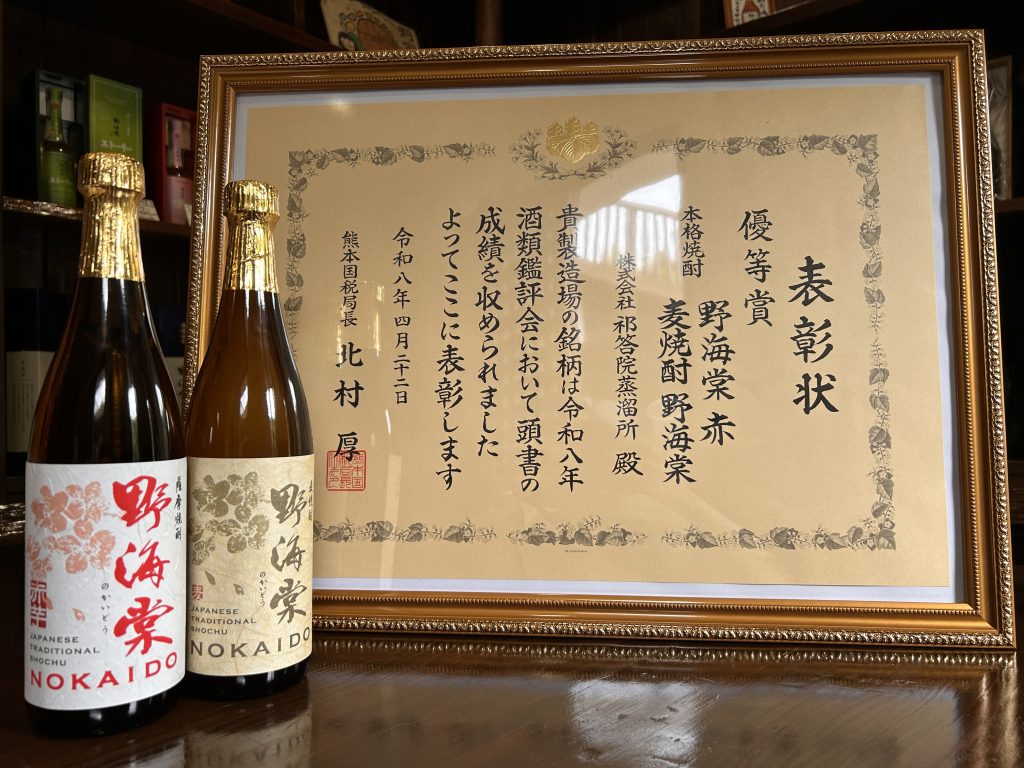 表彰状
優等賞
野海棠 赤
本格焼酎
麦焼酎 野海棠
株式会社 祁答院蒸溜所 殿
貴製造場の銘柄は令和八年
酒類鑑評会において頭書の
成績を収められました
よってここに表彰します
令和八年四月二十二日
熊本国税局長 北村 厚
薩摩焼酎
野海棠
のかいどう
JAPANESE
TRADITIONAL
SHOCHU
NOKAIDO
野海棠
のかいどう
麦
JAPANESE
TRADITIONAL
SHOCHU
NOKAIDO